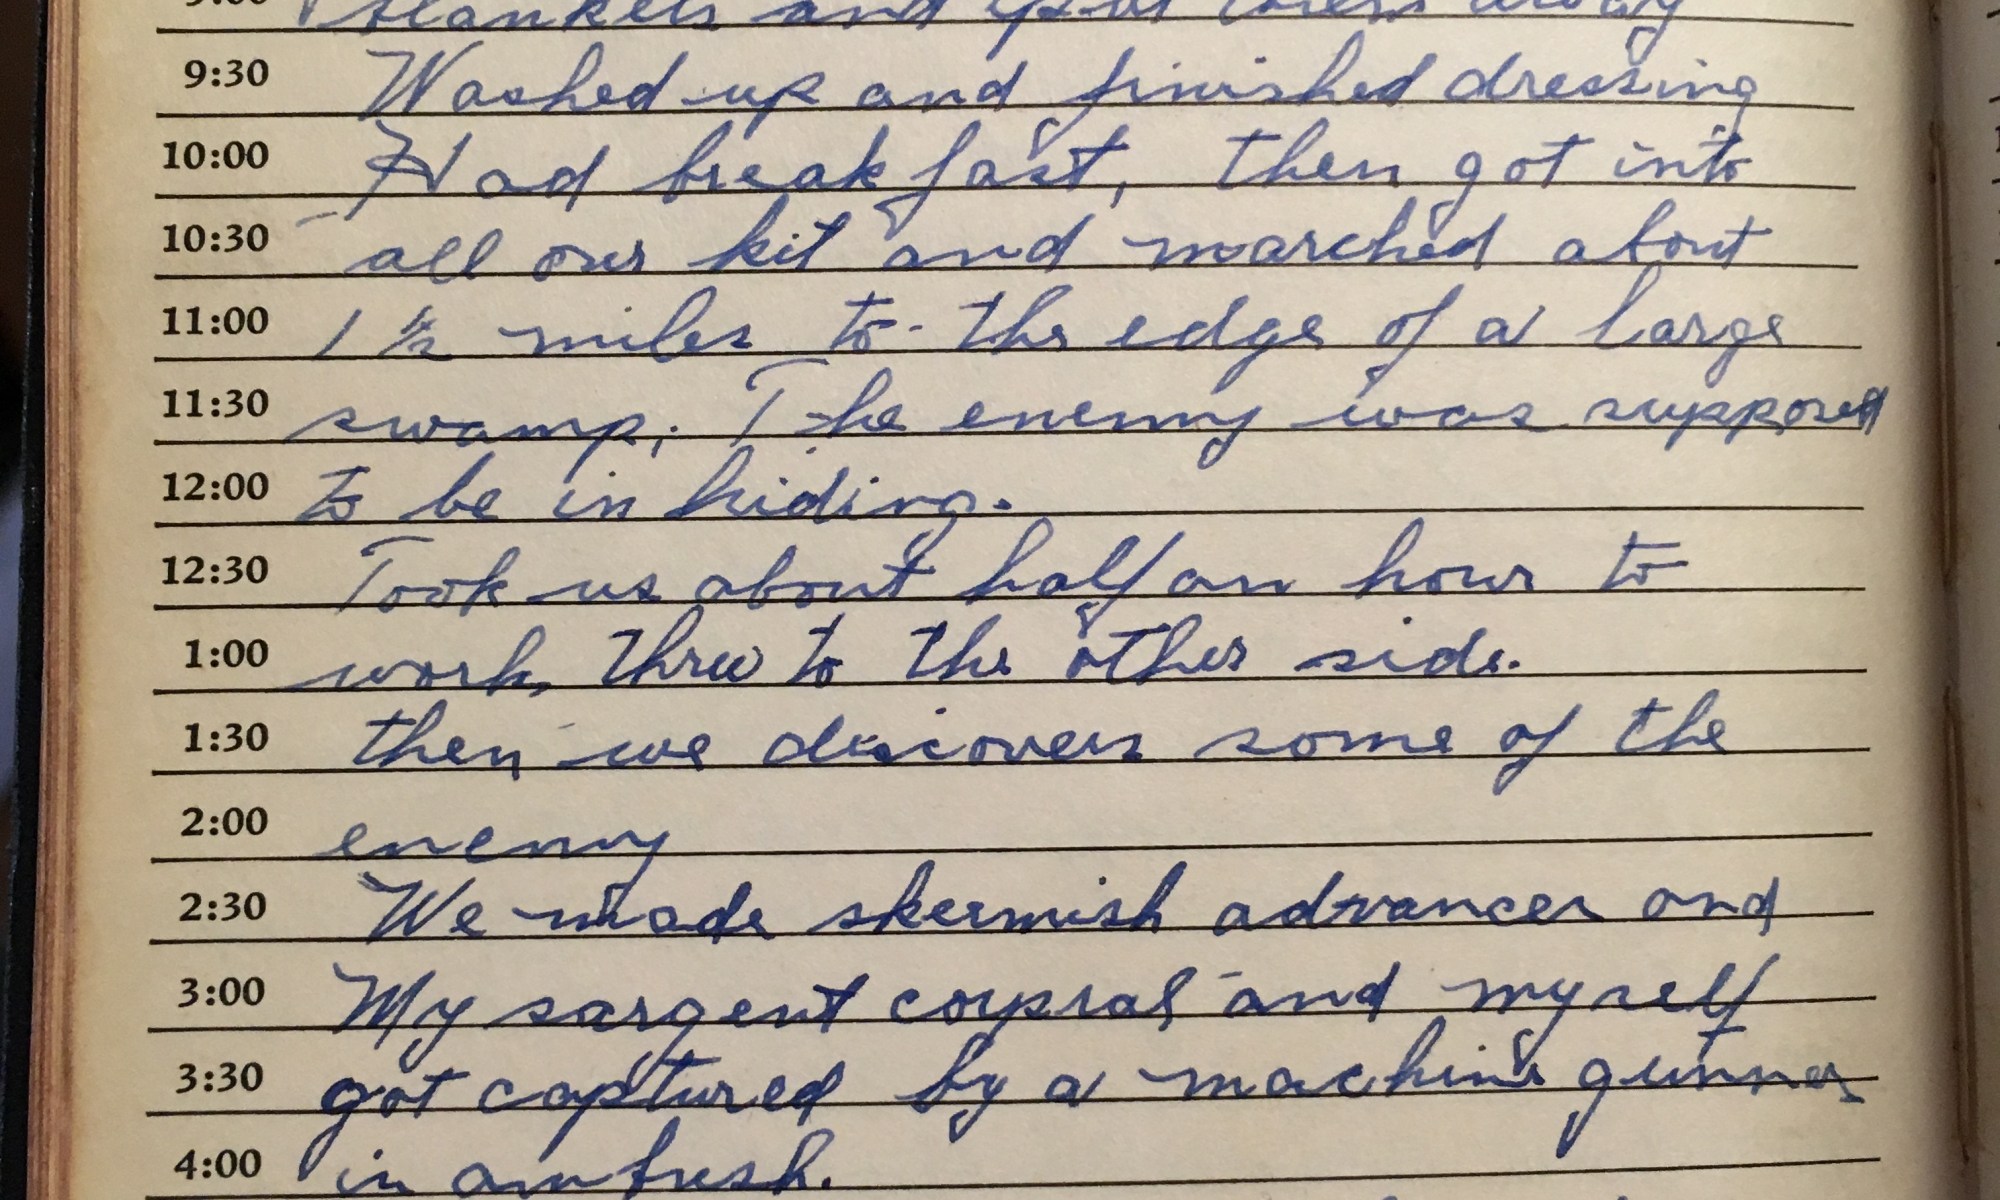 blankets and
9:30 Washed up and finished dressing
10:00 Had breakfast, then got into
10:30 all our kit and marched about
11:00 1 ½ miles to the edge of a large
11:30 swamp. The enemy was supposed
12:00 to be in hiding.
12:30 Took us about half an hour to
1:00 work threw to the other side.
1:30 then we discovers some of the
2:00 enemy
2:30 We made skermish advances and
3:00 My sargent corpral and myself
3:30 got captured by a machine gunner
4:00 in ambush.